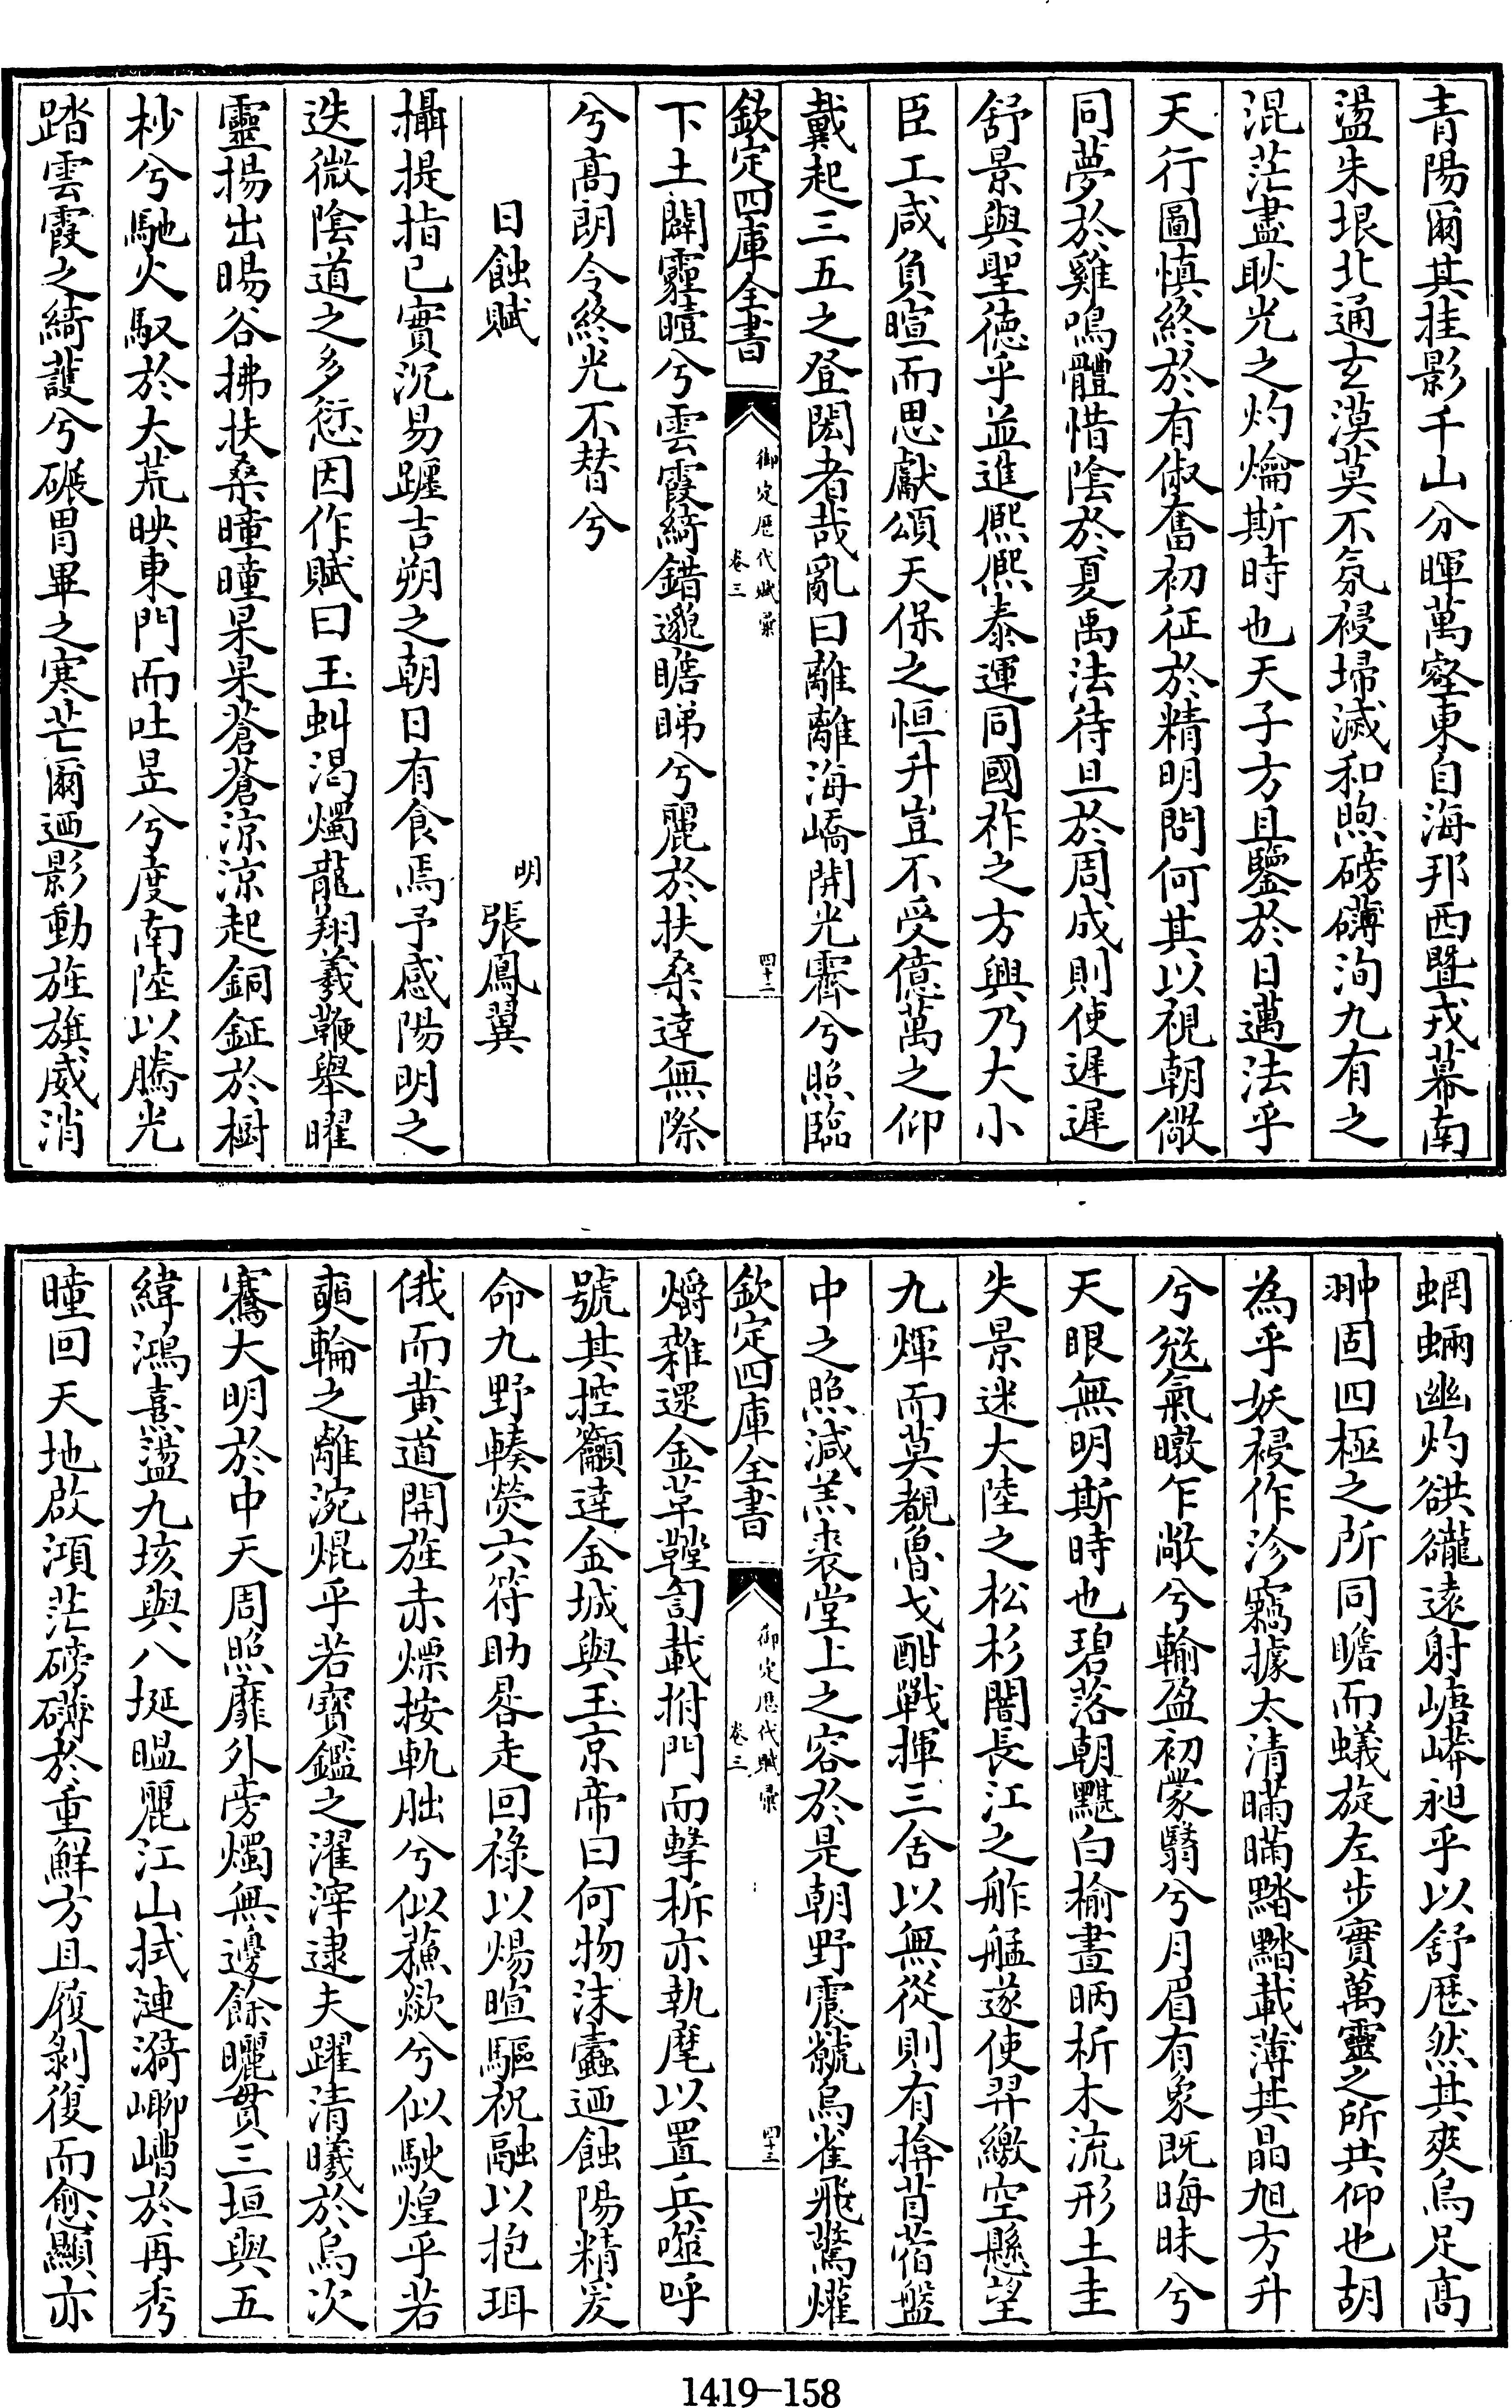 青陽爾其挂影千山分暉萬壑東自海邦西暨戎幕南
盪朱垠北通玄漠莫不氛祲埽滅和煦磅礴洵九有之
混茫盡耿光之灼爚斯時也天子方且鑒於日邁法乎
天行圖慎終於有俶奮初征於精明問何其以視朝儆
同夢於雞鳴體惜陰於夏禹法待旦於周成則使遲遲
舒景與聖德乎並進熈熈泰運同國祚之方興乃大小
臣工咸負暄而思獻頌天保之恒升豈不受億萬之仰
戴起三五之登閎者哉亂曰離離海嶠開光霽兮照臨
欽定四庫全書
御定歷代賦彙
卷三
四十二
下土闢霾曀兮雲霞綺錯邈瞻睇兮麗於扶桑逹無際
兮髙朗令終光不替兮
日蝕賦
明
張鳳翼
攝提指已實沉易躔吉朔之朝日有食焉予感陽明之
迭微陰道之多愆因作賦曰玉虯渴燭龍翔羲鞭舉曜
靈揚出暘谷拂扶桑曈曈杲杲蒼蒼涼涼起銅鉦於樹
杪兮馳火馭於大荒映東門而吐昱兮度南陸以騰光
踏雲霞之綺䕶兮碾胃畢之寒芒爾迺影動旌旗威消
蜩蛃幽灼谼巃遠射嵣㟐昶乎以舒厯然其爽烏足髙
翀固四極之所同瞻而蟻旋左步實萬靈之所共仰也胡
為乎妖祲作沴竊據太清暪暪黯黯載薄其晶旭方升
兮愆氣暾乍敞兮輸盈初蒙翳兮月眉有象既晦昧兮
天眼無明斯時也碧落朝黮白榆晝昞析木流形土圭
失景迷大陸之松杉闇長江之舴艋遂使羿繳空懸望
九煇而莫覩魯戈酣戰揮三舍以無從則有揜苜蓿盤
中之照減羔裘堂上之容於是朝野震虩烏雀飛驚爟
爝雜還金革鞺訇載拊門而擊柝亦執麾以置兵噬呼
號其控籲逹金城與玉京帝曰何物沫蠹迺蝕陽精爰
命九野轃熒六符助晷走回祿以煬暄驅祝融以抱珥
俄而黄道開旌赤熛按軌朏兮似蘓歘兮似駛煌乎若
奭輪之離涴焜乎若寳鑑之濯滓逮夫躍清曦於烏次
騫大明於中天周照靡外旁燭無邊餘曬貫三垣與五
緯鴻熹盪九垓與八挻暱麗江山拭漣漪㟹嶆於再秀
曈回天地啟澒茫磅礴於重鮮方且履剝復而愈顯亦
1419-158